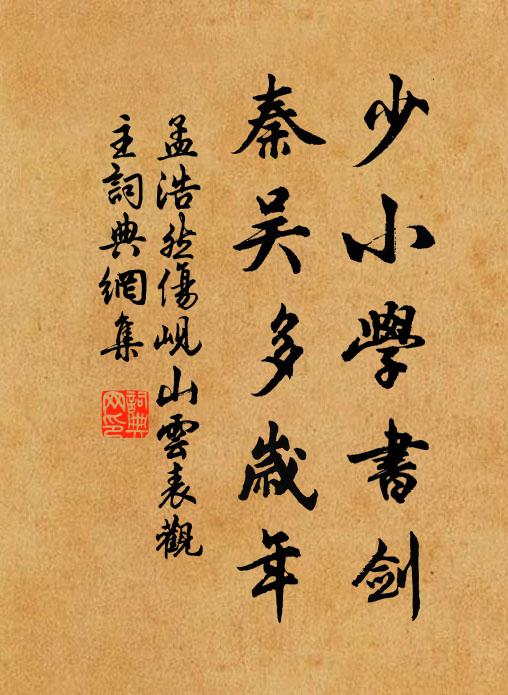 少小學書劍
秦吳多歲年
孟浩然傷峴山雲表觀
主詞典網集
詞典
网印